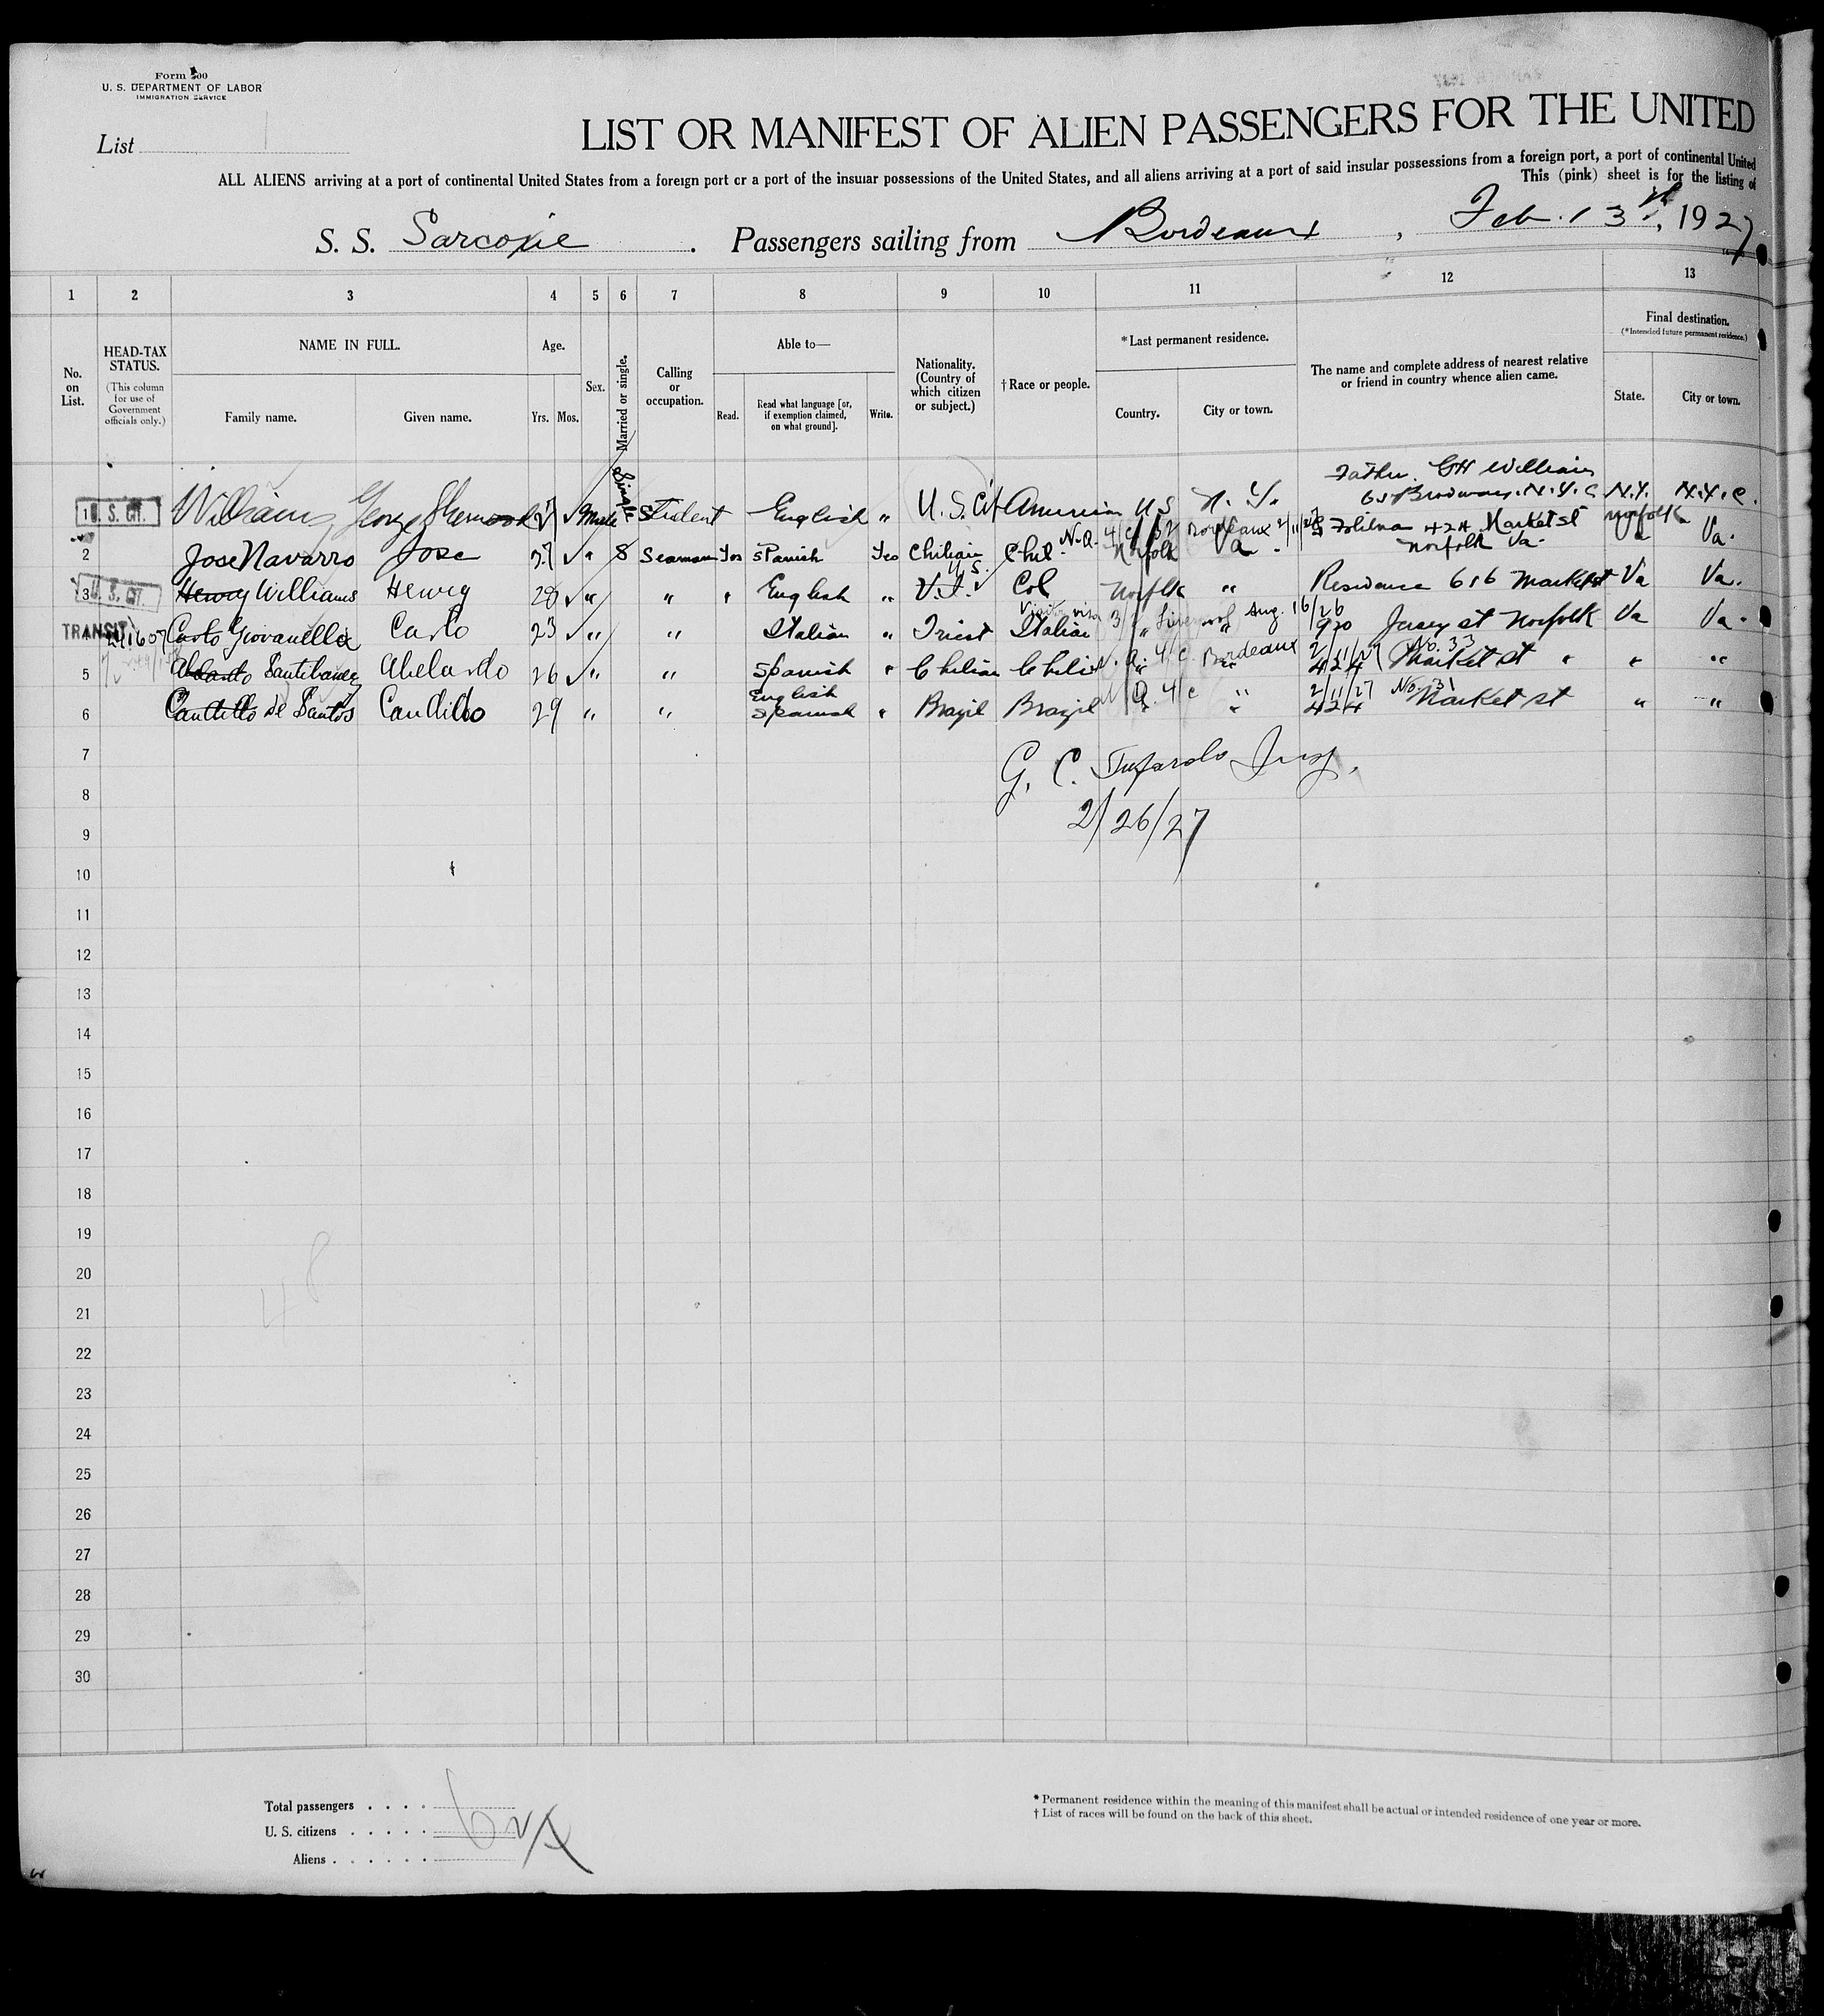 Form 500
U. S. DEPARTMENT OF LABOR
IMMIGRATION SERVICE
List 1
LIST OR MANIFEST OF ALIEN PASSENGERS FOR THE UNITED
ALL ALIENS arriving at a port of continental United States from a foreign port or a port of the insular possessions of the United States, and all aliens arriving at a port of said insular possessions from a foreign port, a port of continental United
This (pink) sheet is for the listing of
S. S. Sarcoxie . Passengers sailing from Bordeaux , Feb. 13th, 1927
1 2 3 4 5 6 7 8 9 10 11 12 13
No. on List.
HEAD-TAX STATUS. (This column for use of Government officials only.)
NAME IN FULL.
Family name. Given name.
Age.
Yrs. Mos.
Sex.
Married or single.
Calling or occupation.
Able to—
Read. Read what language [or, if exemption claimed, on what ground]. Write.
Nationality. (Country of which citizen or subject.)
† Race or people.
* Last permanent residence.
Country. City or town.
The name and complete address of nearest relative or friend in country whence alien came.
Final destination.
(* Intended future permanent residence.)
State. City or town.
Father. GH Williams
1 U. S. CIT. Williams George 27 Male Single Student English " U.S. Cit American U S N. Y. 65 Broadway. N.Y.C N.Y. N.Y.C.
N.Q. 4/c Bordeaux 2/11/27 424 Market st Norfolk
2 Jose Navarro Jose 27 " S Seaman Yes Spanish Yes Chilian Chil Norfolk Va. Norfolk Va. Va.
U.S.
3 U. S. CIT. Henry Williams Henry 28 " " " English " V.I. Col Norfolk " Residence 616 Market st Va Va.
3/2 Liverpool Aug. 16/26
4 TRANSIT Carlo Giovanella Carlo 23 " " Italian " Triest Italian " " 920 Jersey st Norfolk Va Va.
N.Q. 4/c Bordeaux 2/11/27 No. 33
5 Abelardo Santibanez Abelardo 26 " " Spanish " Chilian Chilian " " 424 Market st " " "
English N.Q. 4/c " 2/11/27 No. 31
6 Candido de Santos Candido 29 " " Spanish " Brazil Brazil " " 424 Market st " "
7
G. C. Tufarolo Insp.
8
2/26/27
9
10
11
12
13
14
15
16
17
18
19
48
20
21
22
23
24
25
26
27
28
29
30
Total passengers . . . . 6
U. S. citizens . . . . .
Aliens . . . . . .
* Permanent residence within the meaning of this manifest shall be actual or intended residence of one year or more.
† List of races will be found on the back of this sheet.